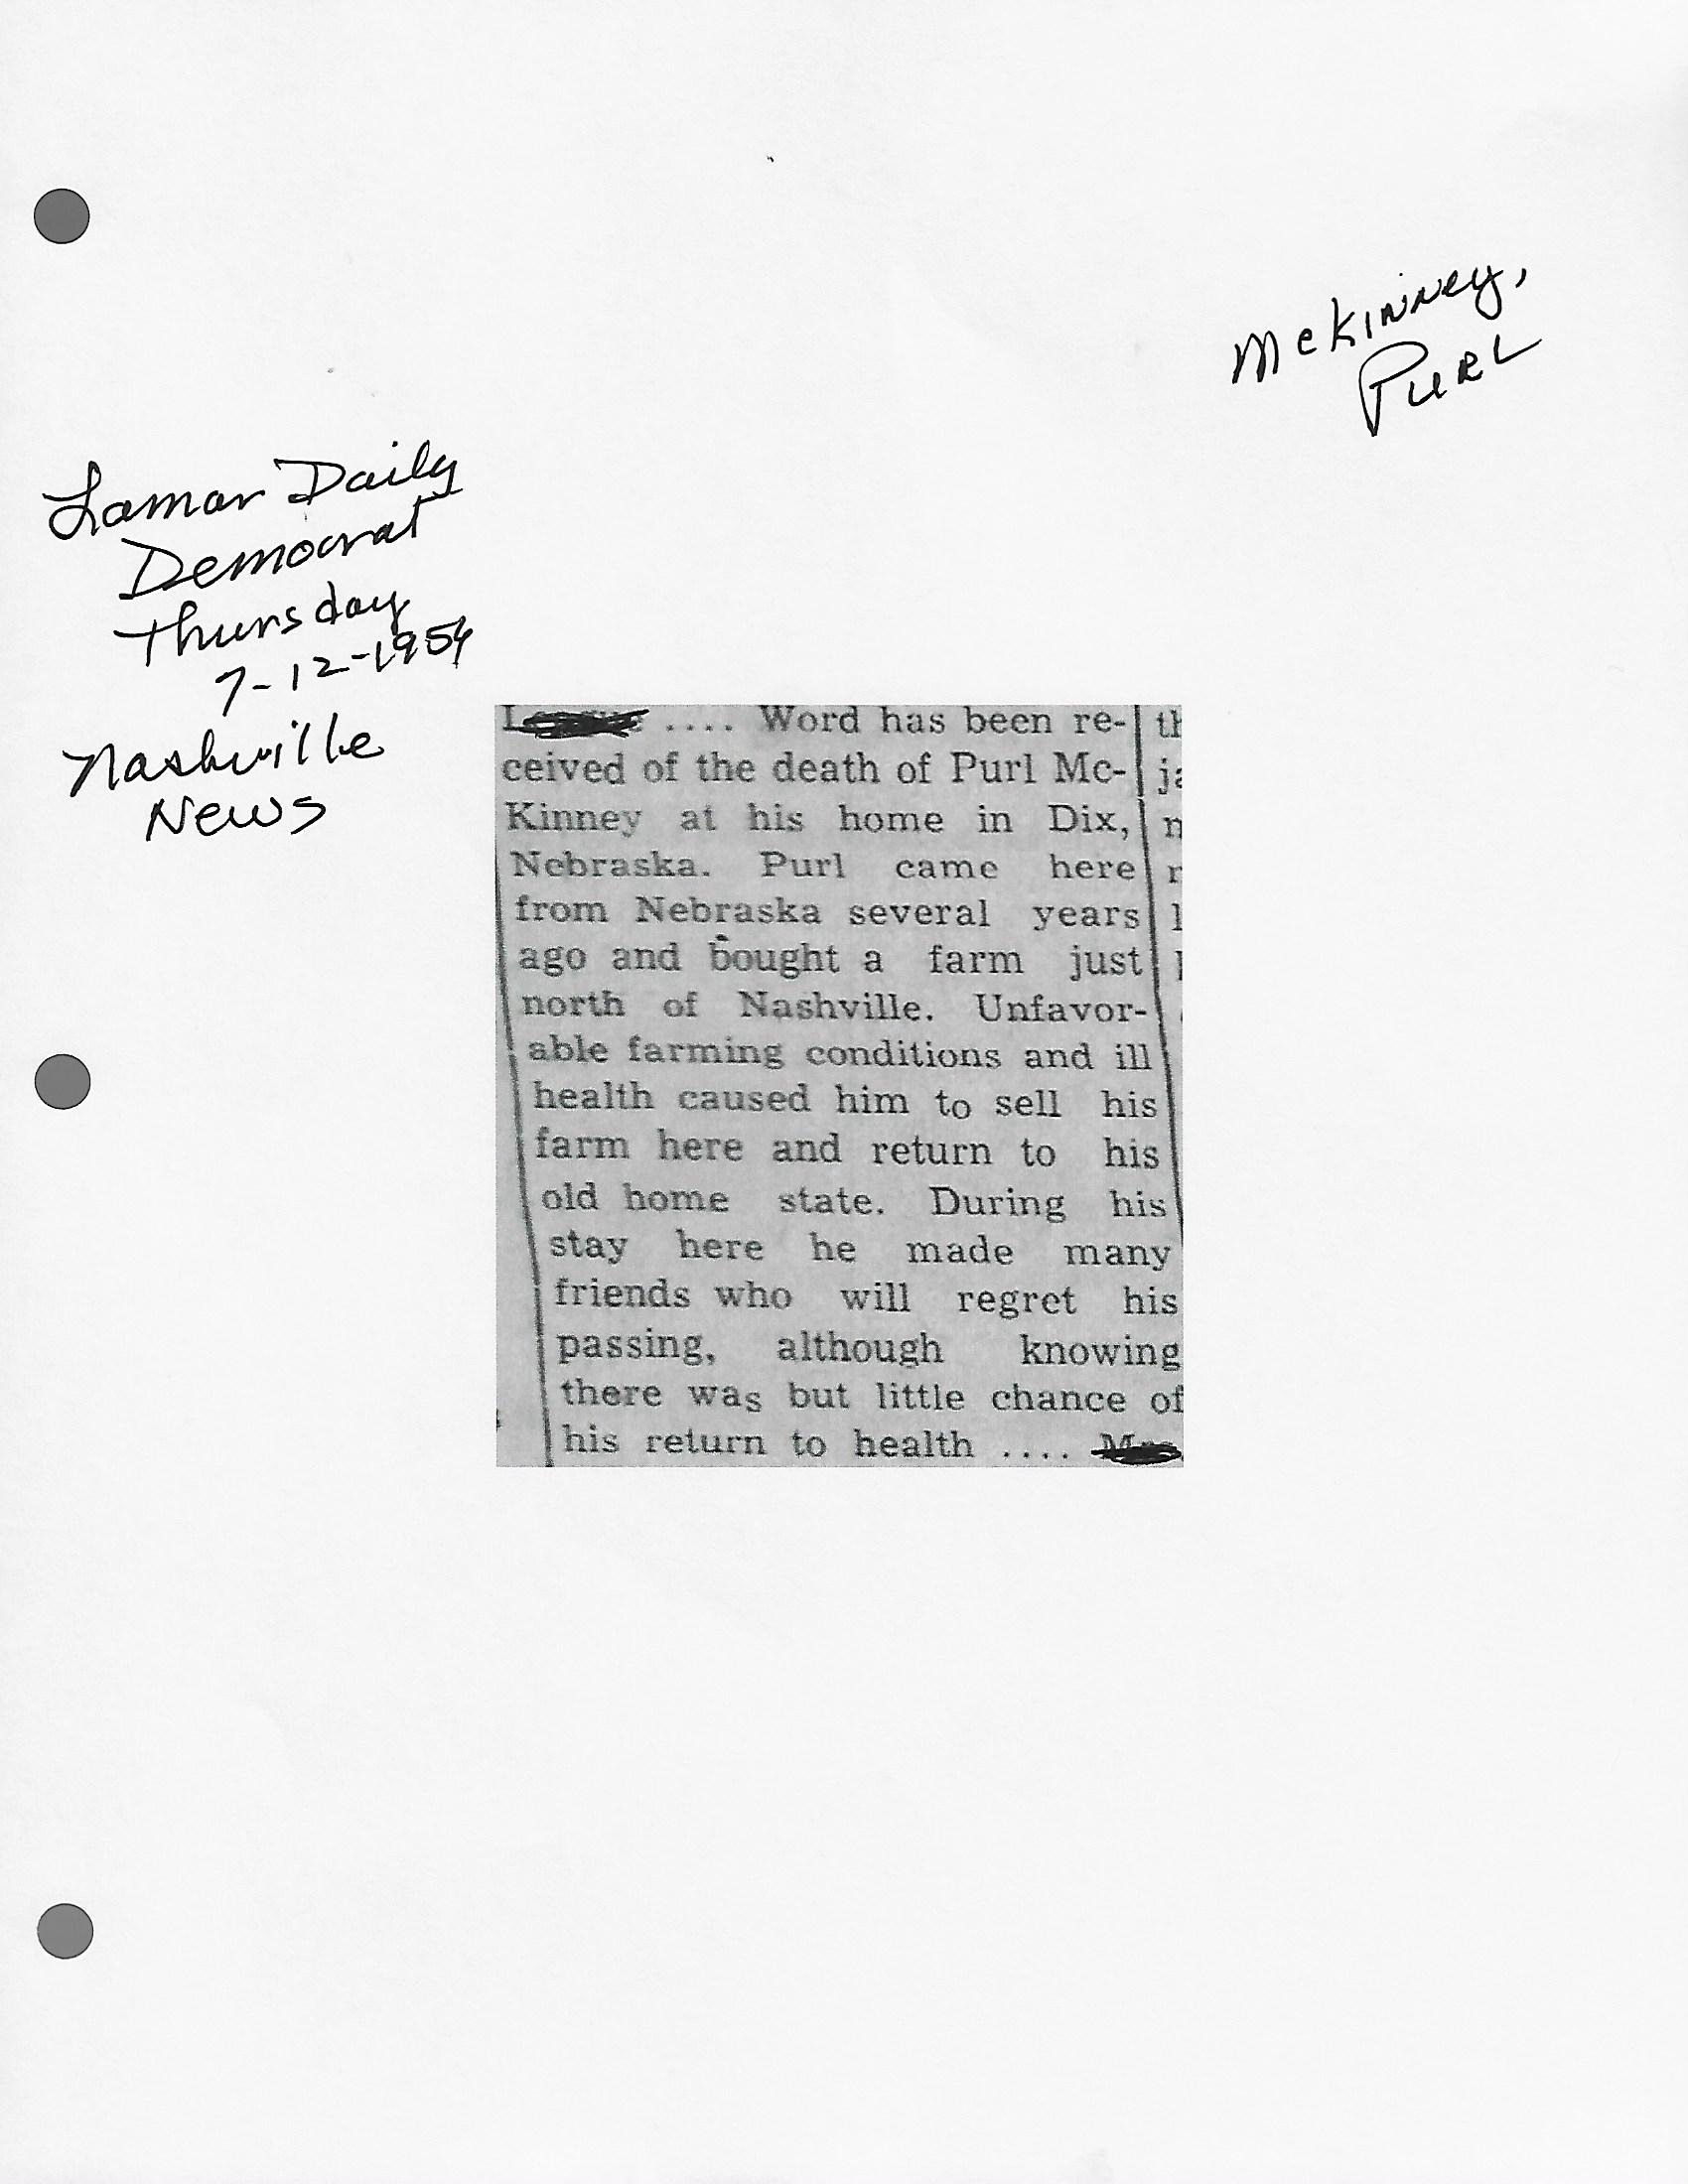 McKinney,
Purl
Lamar Daily
Democrat
Thursday
7-12-1954
Nashville
News
.... Word has been re-
ceived of the death of Purl Mc-
Kinney at his home in Dix,
Nebraska. Purl came here
from Nebraska several years
ago and bought a farm just
north of Nashville. Unfavor-
able farming conditions and ill
health caused him to sell his
farm here and return to his
old home state. During his
stay here he made many
friends who will regret his
passing, although knowing
there was but little chance of
his return to health ....